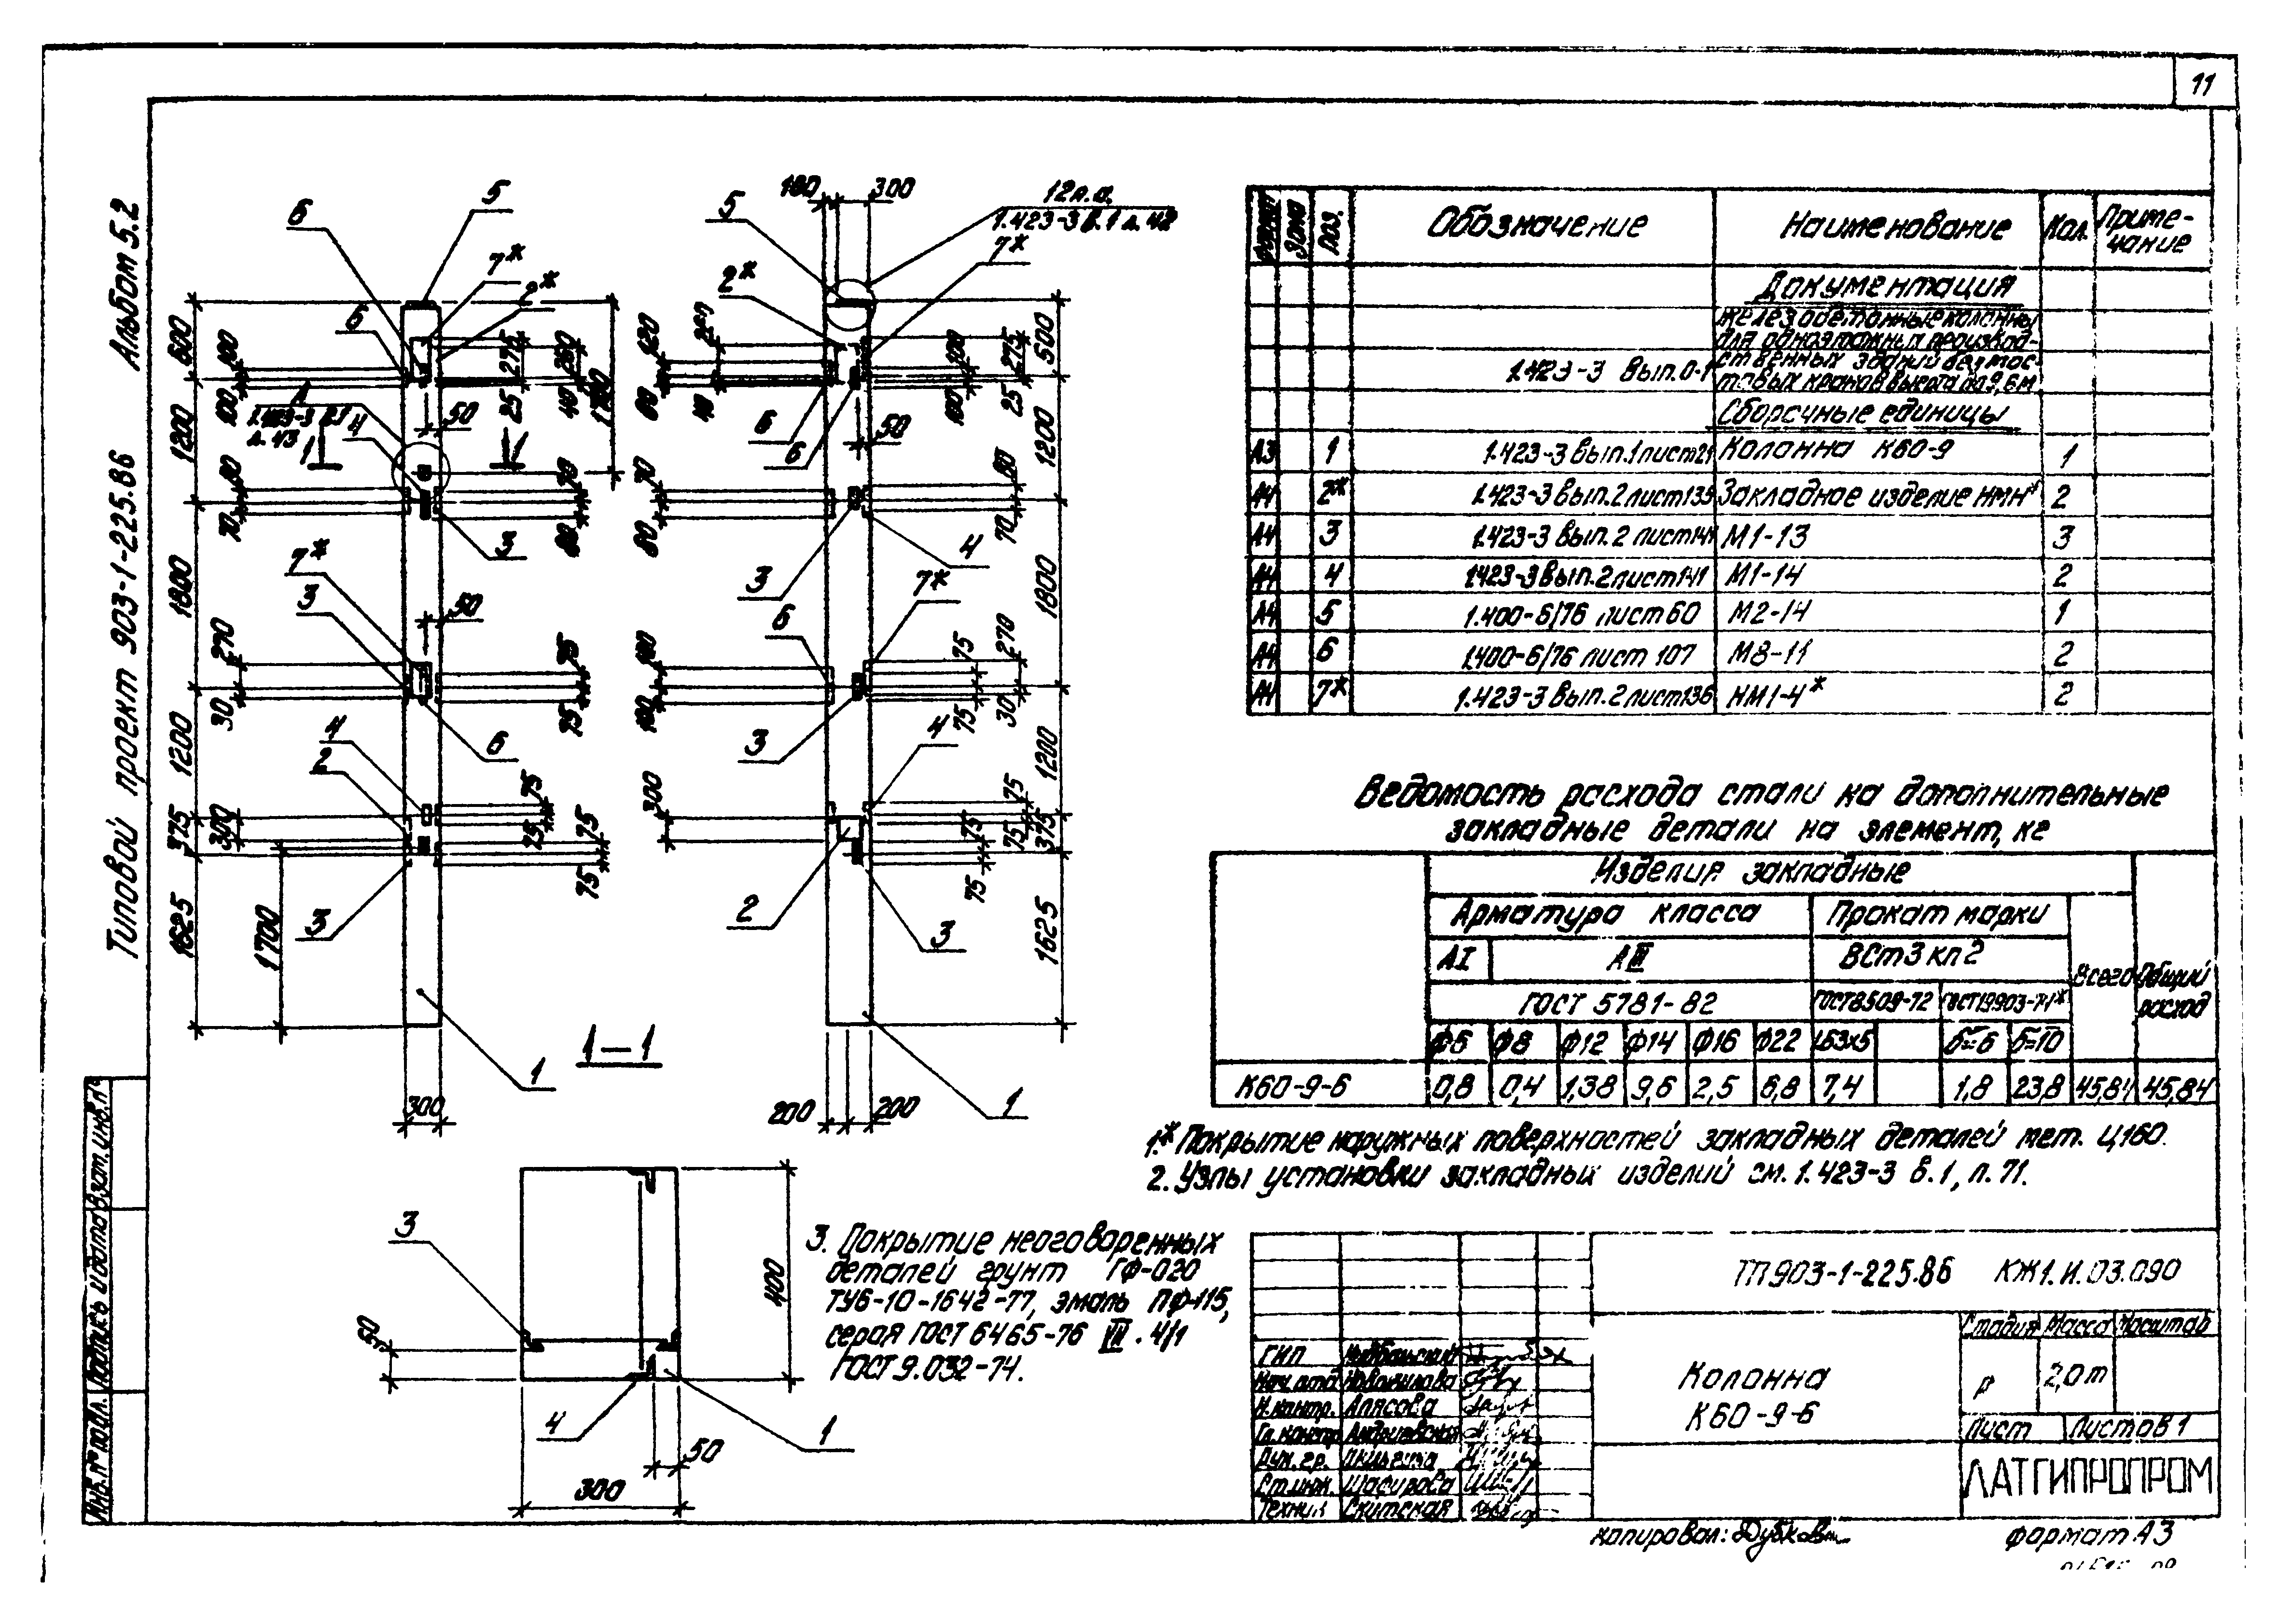 11
Альбом 5.2
Типовой проект 903-1-225.86
Взам. инв. №
Подпись и дата
Инв. № подл.
6
5
7*
2*
6
600
100
100
275
260
25
40
50
1200
1.423-3
л. 43
1
1
4
80
70
70
80
3
1800
7*
3
50
270
30
75
75
6
1200
4
2
375
300
75
25
75
75
3
1625
1700
1
300
180
300
12 л.а.
1.423-3 в.1 л. 42
5
7*
2*
120
80
260
40
100
100
275
25
500
6
6
50
1200
70
80
80
70
4
3
7*
1800
6
100
100
75
75
270
30
3
4
1200
300
75
75
75
75
375
2
3
1625
1
200
200
1-1
3
50
4
1
50
300
400
Формат
Зона
Поз.
Обозначение
Наименование
Кол.
Приме-
чание
Документация
Железобетонные колонны
для одноэтажных производ-
1.423-3 Вып.0-1
ственных зданий без мос-
товых кранов высотой до 9,6м
Сборочные единицы
А3 1 1.423-3 вып.1 лист 21 Колонна К60-9 1
А4 2* 1.423-3 вып.2 лист 135 Закладное изделие 2
А4 3 1.423-3 вып.2 лист 141 М1-13 3
А4 4 1.423-3 вып.2 лист 141 М1-14 2
А4 5 1.400-6/76 лист 60 М2-14 1
А4 6 1.400-6/76 лист 107 М8-11 2
А4 7* 1.423-3 вып.2 лист 136 НМ1-4* 2
Ведомость расхода стали на дополнительные
закладные детали на элемент, кг
Изделия закладные
Арматура класса
Прокат марки
АI
АIII
ВСт3кп2
Всего
Общий
расход
ГОСТ 5781-82
ГОСТ 8509-72
ГОСТ 19903-74*
Ф6 Ф8 Ф12 Ф14 Ф16 Ф22 L63х5 δ=6 δ=10
К60-9-6 0,8 0,4 1,38 9,6 2,5 6,8 7,4 1,8 23,8 45,84 45,84
1.* Покрытие наружных поверхностей закладных деталей мет. Ц160.
2. Узлы установки закладных изделий см. 1.423-3 в.1, л. 71.
3. Покрытие неоговоренных
деталей грунт ГФ-020
ТУ6-10-1642-77, эмаль ПФ-115,
серая ГОСТ 6465-76 VII. 4/1
ГОСТ 9.032-74.
ТП 903-1-225.86 КЖ1.И.03.090
Колонна
К60-9-6
Стадия Масса Масштаб
Р 2,0т
Лист Листов 1
ЛАТГИПРОПРОМ
ГИП
Нач. отд.
Н.контр. Алясова
Гл. констр. Андриевская
Рук. гр.
Ст.инж. Шафирова
Техник Скитская
копировал:
формат А3